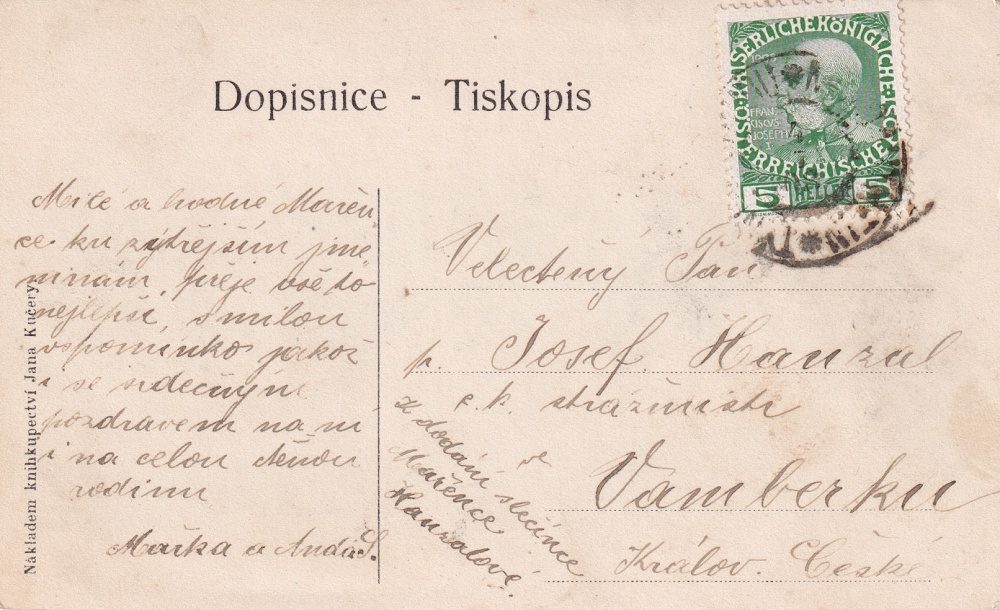 Dopisnice - Tiskopis
KAISERLICHE KÖNIGLICHE
ÖSTERREICHISCHE POST
FRAN
CISCUS
JOSEPH
I
5 HELLER 5
Milé a hodné Mařen
ce ku zýtřejším jme
ninám, přeje vše to
nejlepší, s milou
vspomínko jakož
i se srdečným
pozdravem na ní
i na celou
rodinu
Mařka a Anda S.
Velectěný Pan
p. Josef Hanzal
c. k. strážmistr
ve
Vamberku
Králov. České
K dodání slečince
Mařence
Hanzalové
Nákladem knihkupectví Jana Kučery